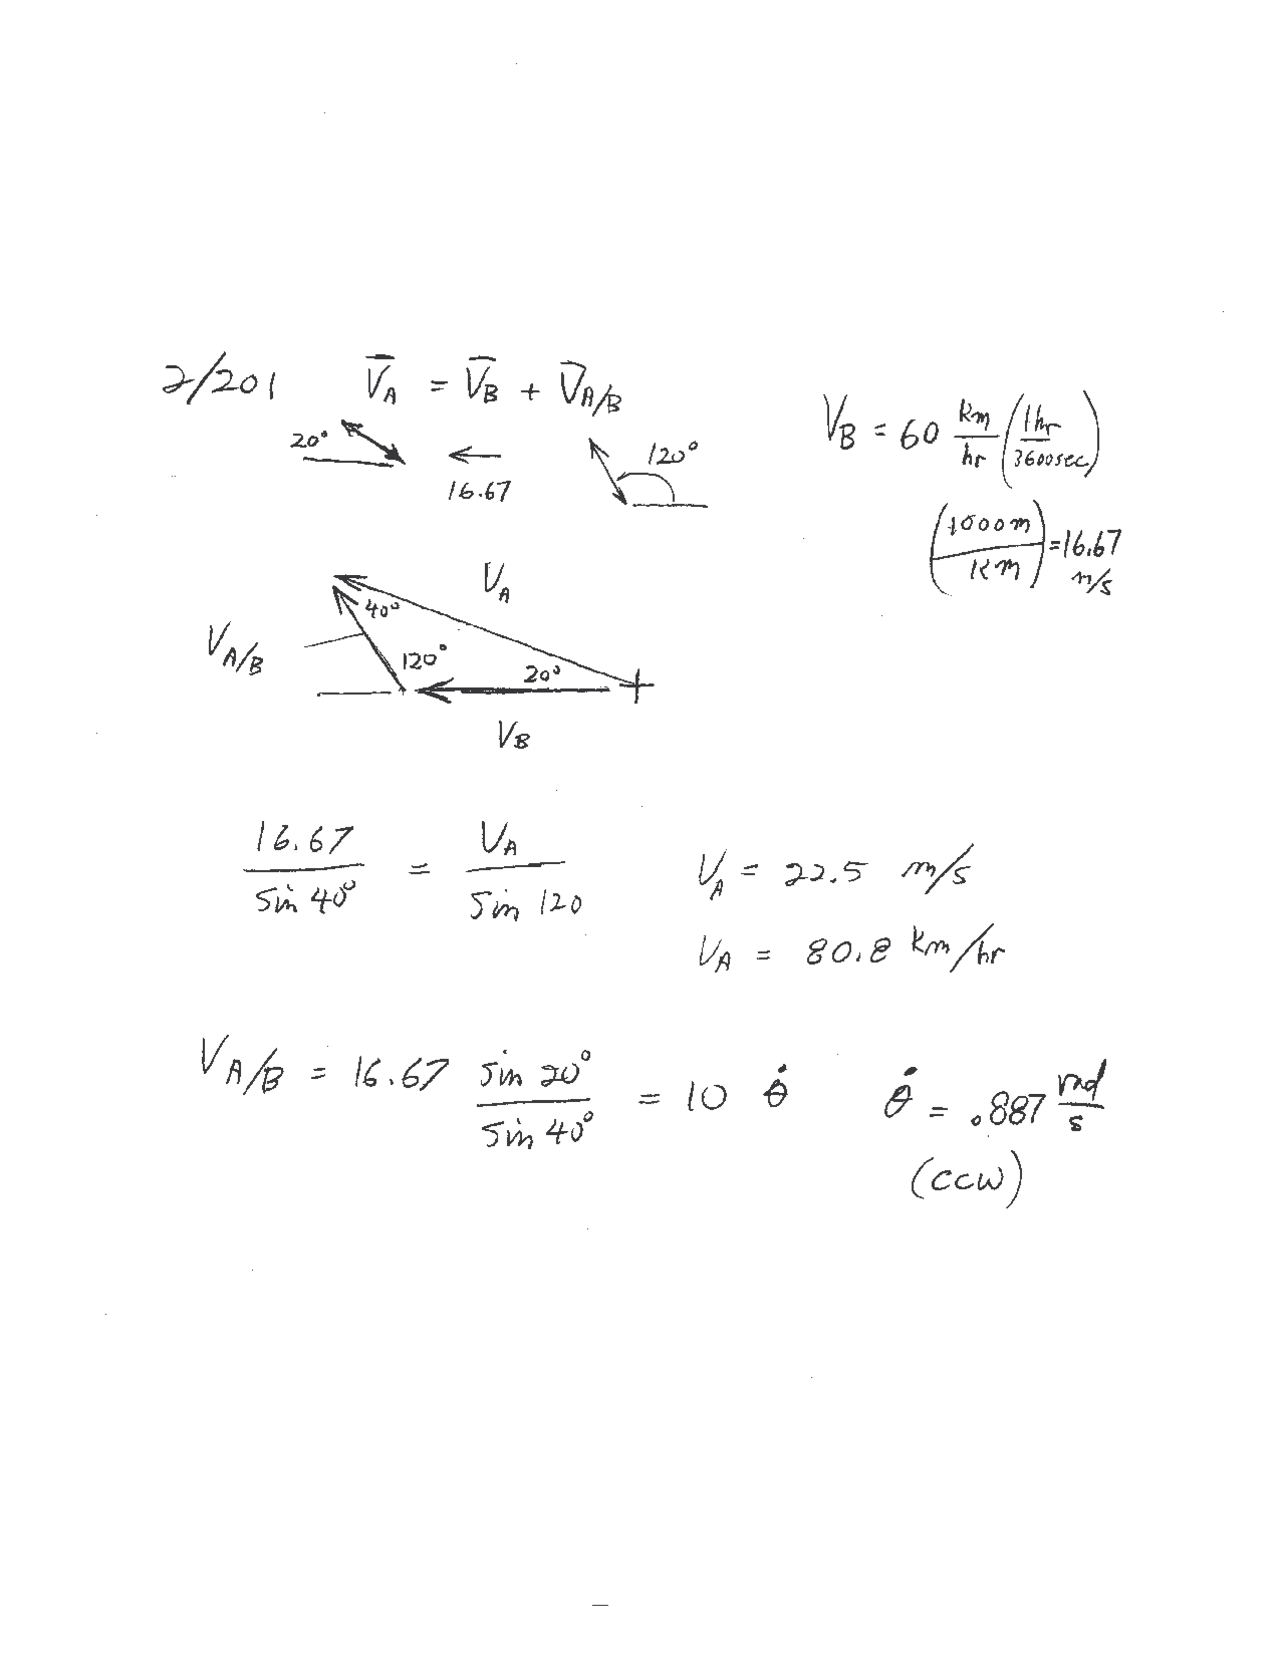 2/201 V̄A = V̄B + V̄A/B
20° 16.67 120°
VB = 60 km/hr (1hr/3600sec)
(1000m/Km) = 16.67 m/s
VA
40°
VA/B 120° 20°
VB
16.67/Sin 40° = VA/Sin 120 VA = 22.5 m/s
VA = 80.8 km/hr
VA/B = 16.67 Sin 20°/Sin 40° = 10 θ̇ θ̇ = .887 rad/s
(CCW)